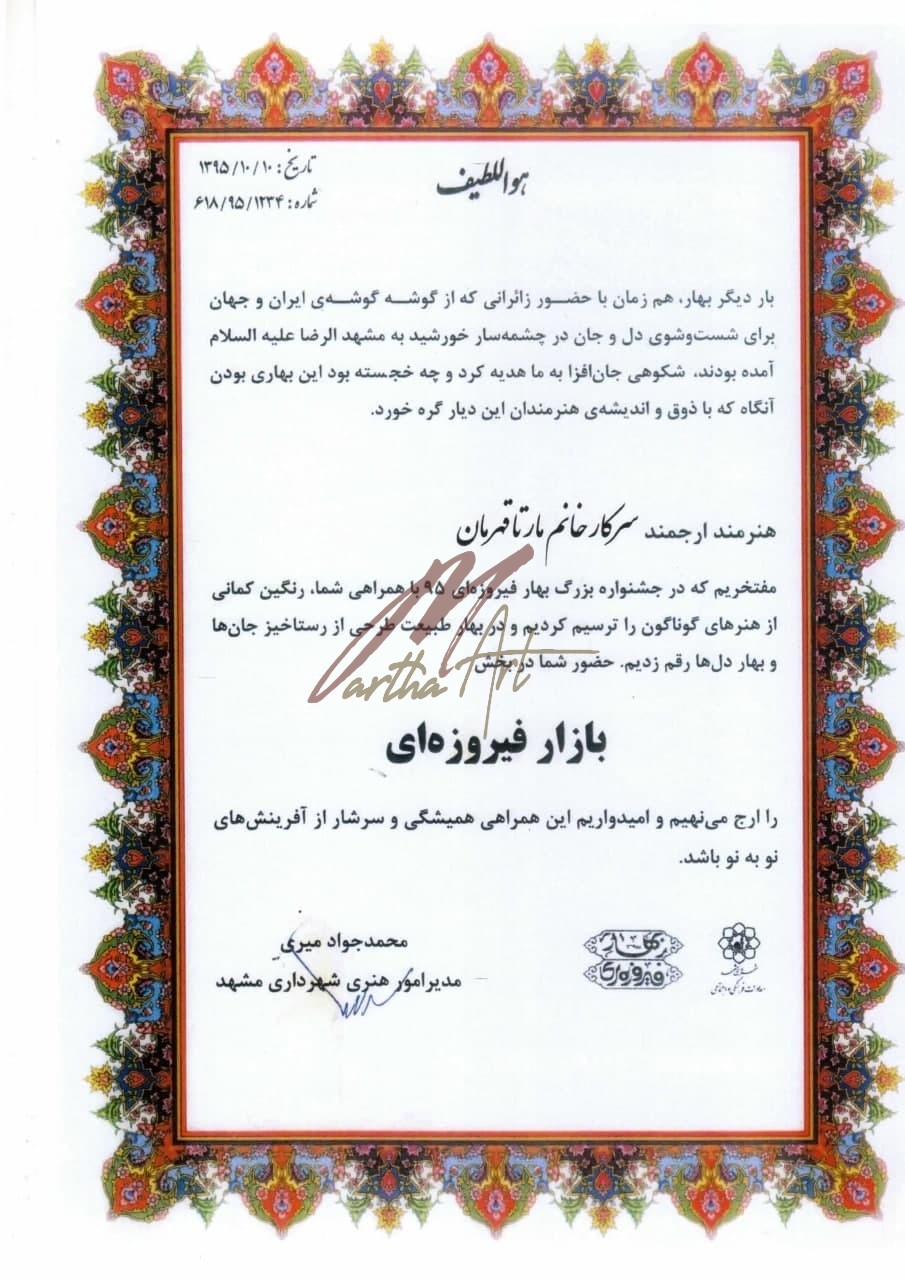 هواللطیف
تاریخ: ۱۳۹۵/۱۰/۱۰
شماره: ۶۱۸/۹۵/۱۲۳۴
بار دیگر بهار، هم زمان با حضور زائرانی که از گوشه گوشه‌ی ایران و جهان
برای شست‌وشوی دل و جان در چشمه‌سار خورشید به مشهد الرضا علیه السلام
آمده بودند، شکوهی جان‌افزا به ما هدیه کرد و چه خجسته بود این بهاری بودن
آنگاه که با ذوق و اندیشه‌ی هنرمندان این دیار گره خورد.
هنرمند ارجمند سرکار خانم مارتا قهرمان
مفتخریم که در جشنواره بزرگ بهار فیروزه‌ای ۹۵ با همراهی شما، رنگین کمانی
از هنرهای گوناگون را ترسیم کردیم و در بهار طبیعت طرحی از رستاخیز جان‌ها
و بهار دل‌ها رقم زدیم. حضور شما در بخش
Martha Art
بازار فیروزه‌ای
را ارج می‌نهیم و امیدواریم این همراهی همیشگی و سرشار از آفرینش‌های
نو به نو باشد.
محمدجواد میری
مدیرامور هنری شهرداری مشهد
بهار
فیروزه‌ای
معاونت فرهنگی و اجتماعی